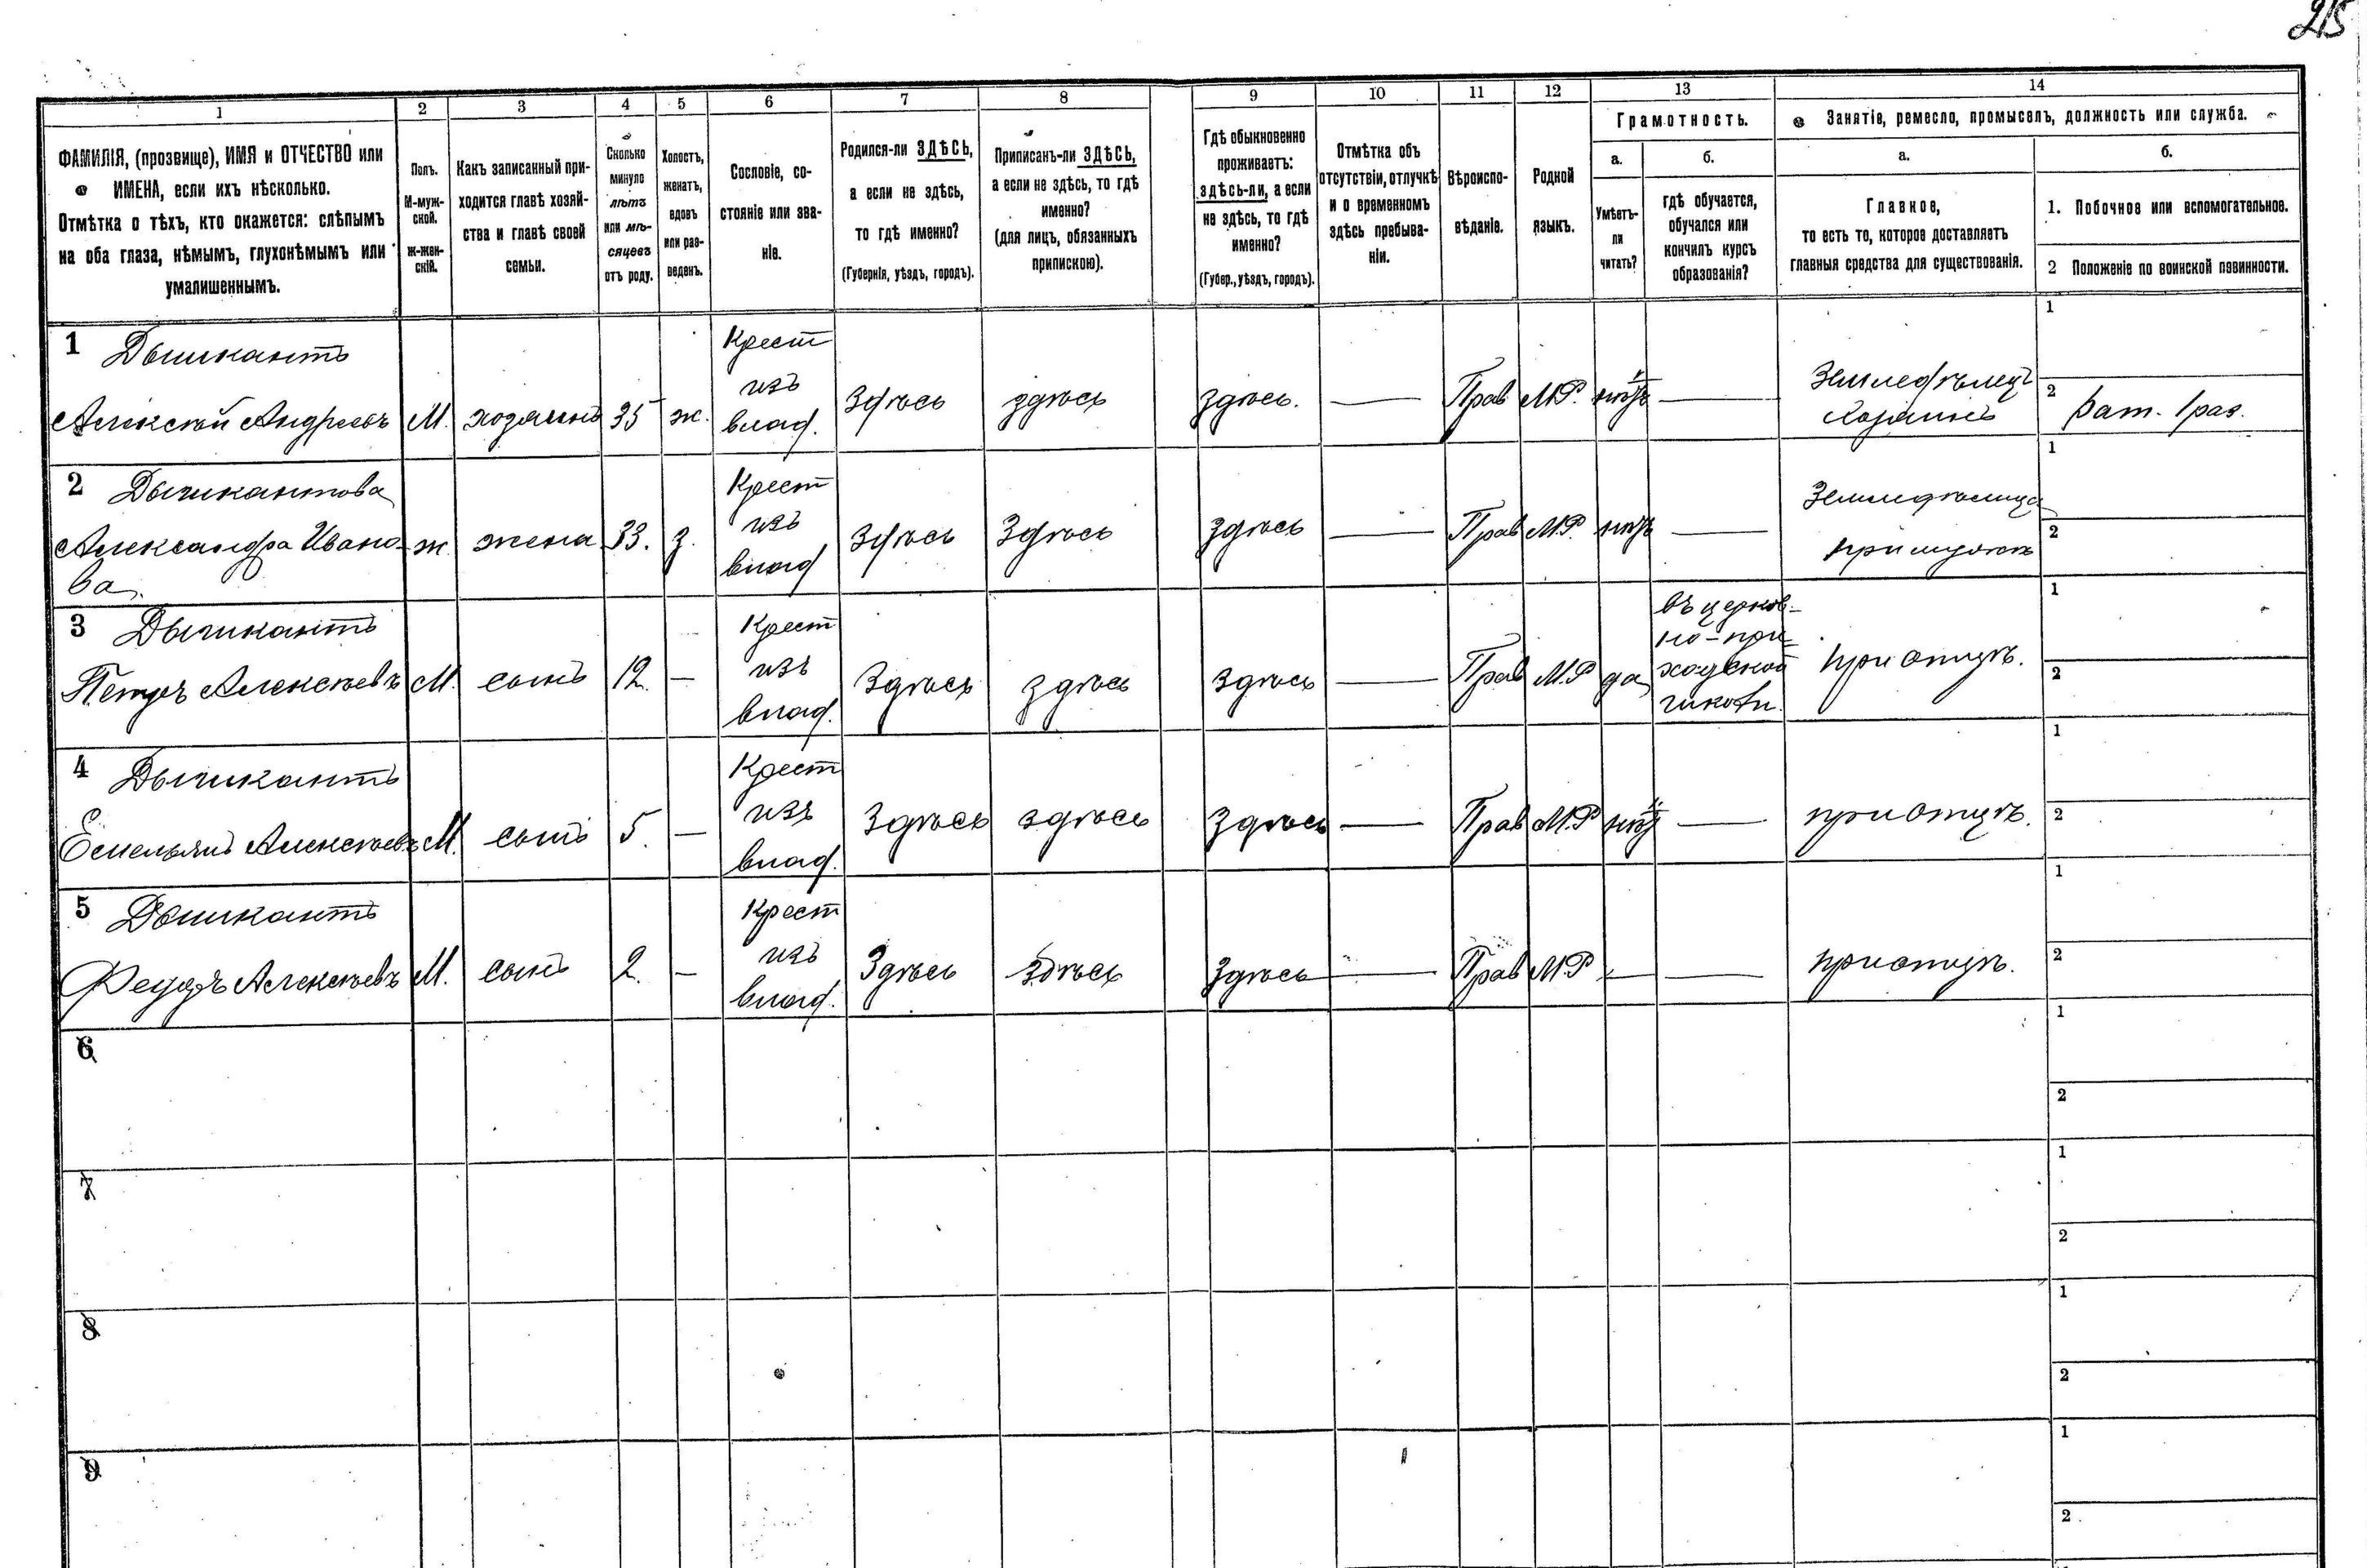 215
1
2
3
4
5
6
7
8
9
10
11
12
13
14
ФАМИЛІЯ, (прозвище), ИМЯ и ОТЧЕСТВО или
ИМЕНА, если ихъ нѣсколько.
Отмѣтка о тѣхъ, кто окажется: слѣпымъ
на оба глаза, нѣмымъ, глухонѣмымъ или
умалишеннымъ.
Полъ.
М-муж-
ской.
ж-жен-
скій.
Какъ записанный при-
ходится главѣ хозяй-
ства и главѣ своей
семьи.
Сколько
минуло
лѣтъ
или мѣ-
сяцевъ
отъ роду.
Холостъ,
женатъ,
вдовъ
или раз-
веденъ.
Сословіе, со-
стояніе или зва-
ніе.
Родился-ли ЗДѢСЬ,
а если не здѣсь,
то гдѣ именно?
(Губернія, уѣздъ, городъ).
Приписанъ-ли ЗДѢСЬ,
а если не здѣсь, то гдѣ
именно?
(для лицъ, обязанныхъ
припискою).
Гдѣ обыкновенно
проживаетъ:
здѣсь-ли, а если
не здѣсь, то гдѣ
именно?
(Губер., уѣздъ, городъ).
Отмѣтка объ
отсутствіи, отлучкѣ
и о временномъ
здѣсь пребыва-
ніи.
Вѣроиспо-
вѣданіе.
Родной
языкъ.
Грамотность.
а.
Умѣетъ-
ли
читать?
б.
гдѣ обучается,
обучался или
кончилъ курсъ
образованія?
Занятіе, ремесло, промыселъ, должность или служба.
а.
Главное,
то есть то, которое доставляетъ
главныя средства для существованія.
б.
1. Побочное или вспомогательное.
2 Положеніе по воинской повинности.
1 Дышкантъ
Алексѣй Андреевъ
М.
хозяинъ
35
ж.
Крест
изъ
влад.
Здѣсь
здѣсь
здѣсь.
—
Прав
М.Р.
нѣтъ
—
Земледѣлецъ
Хозяинъ
1
2 Рат. 1 раз.
2 Дышкантова
Александра Ивано-
ва.
ж.
жена
33.
з.
Крест
изъ
влад
Здѣсь
Здѣсь
здѣсь
—
Прав
М.Р.
нѣтъ
—
Земледѣлица
при мужѣ
1
2
3 Дышкантъ
Петръ Алексѣевъ
М.
сынъ
12.
—
Крест
изъ
влад.
Здѣсь
здѣсь
здѣсь
—
Прав
М.Р
да
въ церков-
но-при-
ходской
школѣ.
при отцѣ.
1
2
4 Дышкантъ
Емельянъ Алексѣевъ
М.
сынъ
5.
—
Крест
изъ
влад.
Здѣсь
здѣсь
Здѣсь
—
Прав
М.Р
нѣтъ
—
при отцѣ.
1
2
5 Дышкантъ
Федоръ Алексѣевъ
М.
сынъ
2.
—
Крест
изъ
влад.
Здѣсь
Здѣсь
Здѣсь
—
Прав
М.Р
—
—
при отцѣ.
1
2
6
1
2
7
1
2
8
1
2
9
1
2